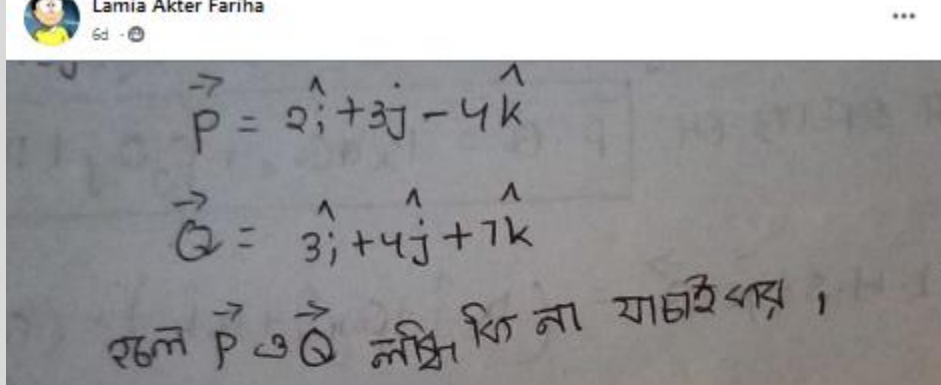 Lamia Akter Fariha
6d
P⃗ = 2î + 3j - 4k̂
Q⃗ = 3î + 4ĵ + 7k̂
হলে P⃗ ও Q⃗ লম্ব কি না যাচাই কর,